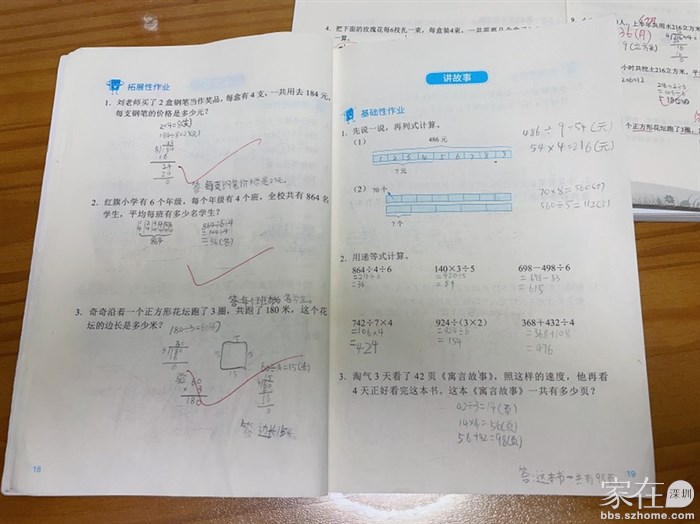 拓展性作业
1. 刘老师买了2盒钢笔当作奖品，每盒有4支，一共用去184元，
每支钢笔的价格是多少元？
2. 红旗小学有6个年级，每个年级有4个班，全校共有864名
学生，平均每班有多少名学生？
3. 奇奇沿着一个正方形花坛跑了3圈，共跑了180米，这个花
坛的边长是多少米？
180÷3=60(米)
60÷4=15(米)
18
讲故事
基础性作业
1. 先说一说，再列式计算。
(1)
486元
1 2 3 4 5 6 7 8 9
?元
486÷9=54(元)
54×4=216(元)
(2) 70个
?个
70×8=560(个)
560÷5=112(个)
2. 用递等式计算。
864÷4÷6
140×3÷5
698-498÷6
=216÷6
=420÷5
=698-83
=36
=84
=615
742÷7×4
924÷(3×2)
368+432÷4
=106×4
=924÷6
=368+108
=424
=154
=476
3. 淘气3天看了42页《寓言故事》，照这样的速度，他再看
4天正好看完这本书。这本《寓言故事》一共有多少页？
42÷3=14(页)
14×4=56(页)
56+42=98(页)
19
4. 把下面的玫瑰花每6枝扎一束，每盒装4束，
36(月)
9(立方米)
家在深圳
bbs.szhome.com